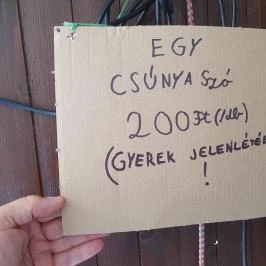 EGY
CSÚNYA SZÓ
200 Ft (/db)
(GYEREK JELENLÉTÉB
!